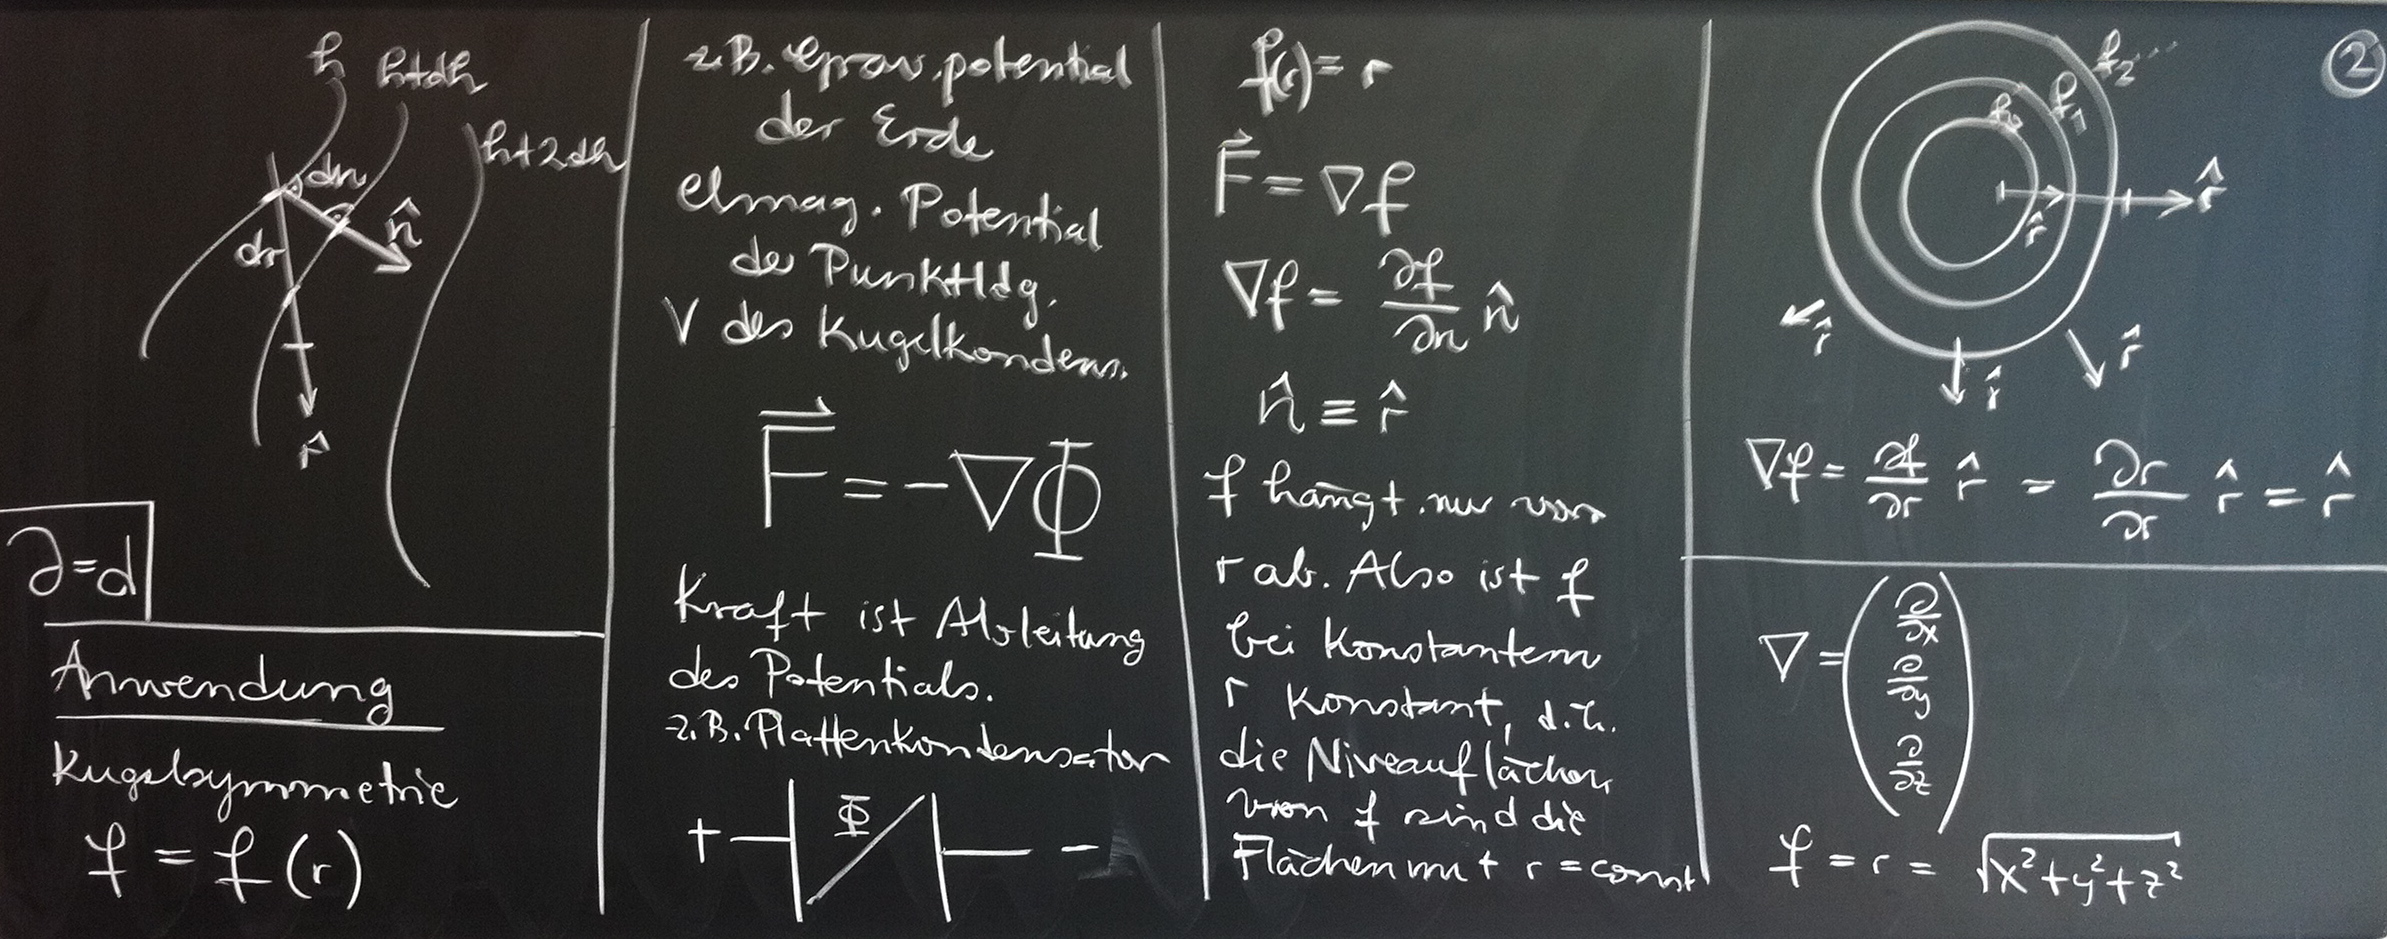 h h+dh
h+2dh
dn
n̂
dr
r̂
∂=d
Anwendung
Kugelsymmetrie
f = f(r)
z.B. Grav.potential
der Erde
elmag. Potential
der Punktldg.
V des Kugelkondens.
F⃗ = -∇Φ
Kraft ist Ableitung
des Potentials.
z.B. Plattenkondensator
+ Φ -
f(r) = r
F⃗ = ∇f
∇f = ∂f/∂n n̂
n̂ ≡ r̂
f hängt nur von
r ab. Also ist f
bei konstantem
r konstant, d.h.
die Niveauflächen
von f sind die
Flächen mit r = const
②
f₂...
f₁
f₀
r̂
r̂
r̂
r̂
r̂
∇f = ∂f/∂r r̂ = ∂r/∂r r̂ = r̂
∇ = (∂/∂x
∂/∂y
∂/∂z)
f = r = √(x²+y²+z²)